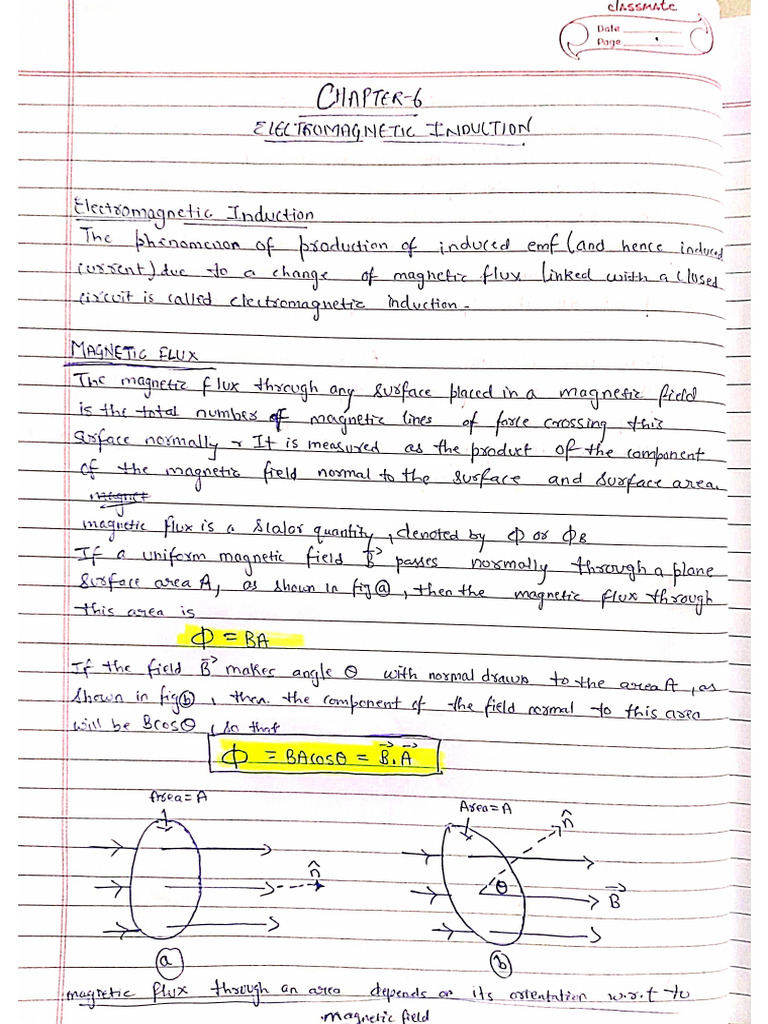 classmate
Date
Page
CHAPTER-6
ELECTROMAGNETIC INDUCTION
Electromagnetic Induction
The phenomenon of production of induced emf (and hence induced
current) due to a change of magnetic flux linked with a closed
circuit is called electromagnetic induction.
MAGNETIC FLUX
The magnetic flux through any surface placed in a magnetic field
is the total number of magnetic lines of force crossing this
surface normally. It is measured as the product of the component
of the magnetic field normal to the surface and surface area.
magnetic flux is a scalor quantity, denoted by Φ or Φ_B
If a uniform magnetic field B⃗ passes normally through a plane
surface area A, as shown in fig ⓐ, then the magnetic flux through
this area is
Φ = BA
If the field B⃗ makes angle θ with normal drawn to the area A, as
shown in fig ⓑ, then the component of the field normal to this area
will be Bcosθ, so that
Φ = BAcosθ = B⃗.A⃗
Area=A
n̂
ⓐ
Area=A
n̂
θ
B⃗
ⓑ
magnetic flux through an area depends on its orientation w.r.t to
magnetic field